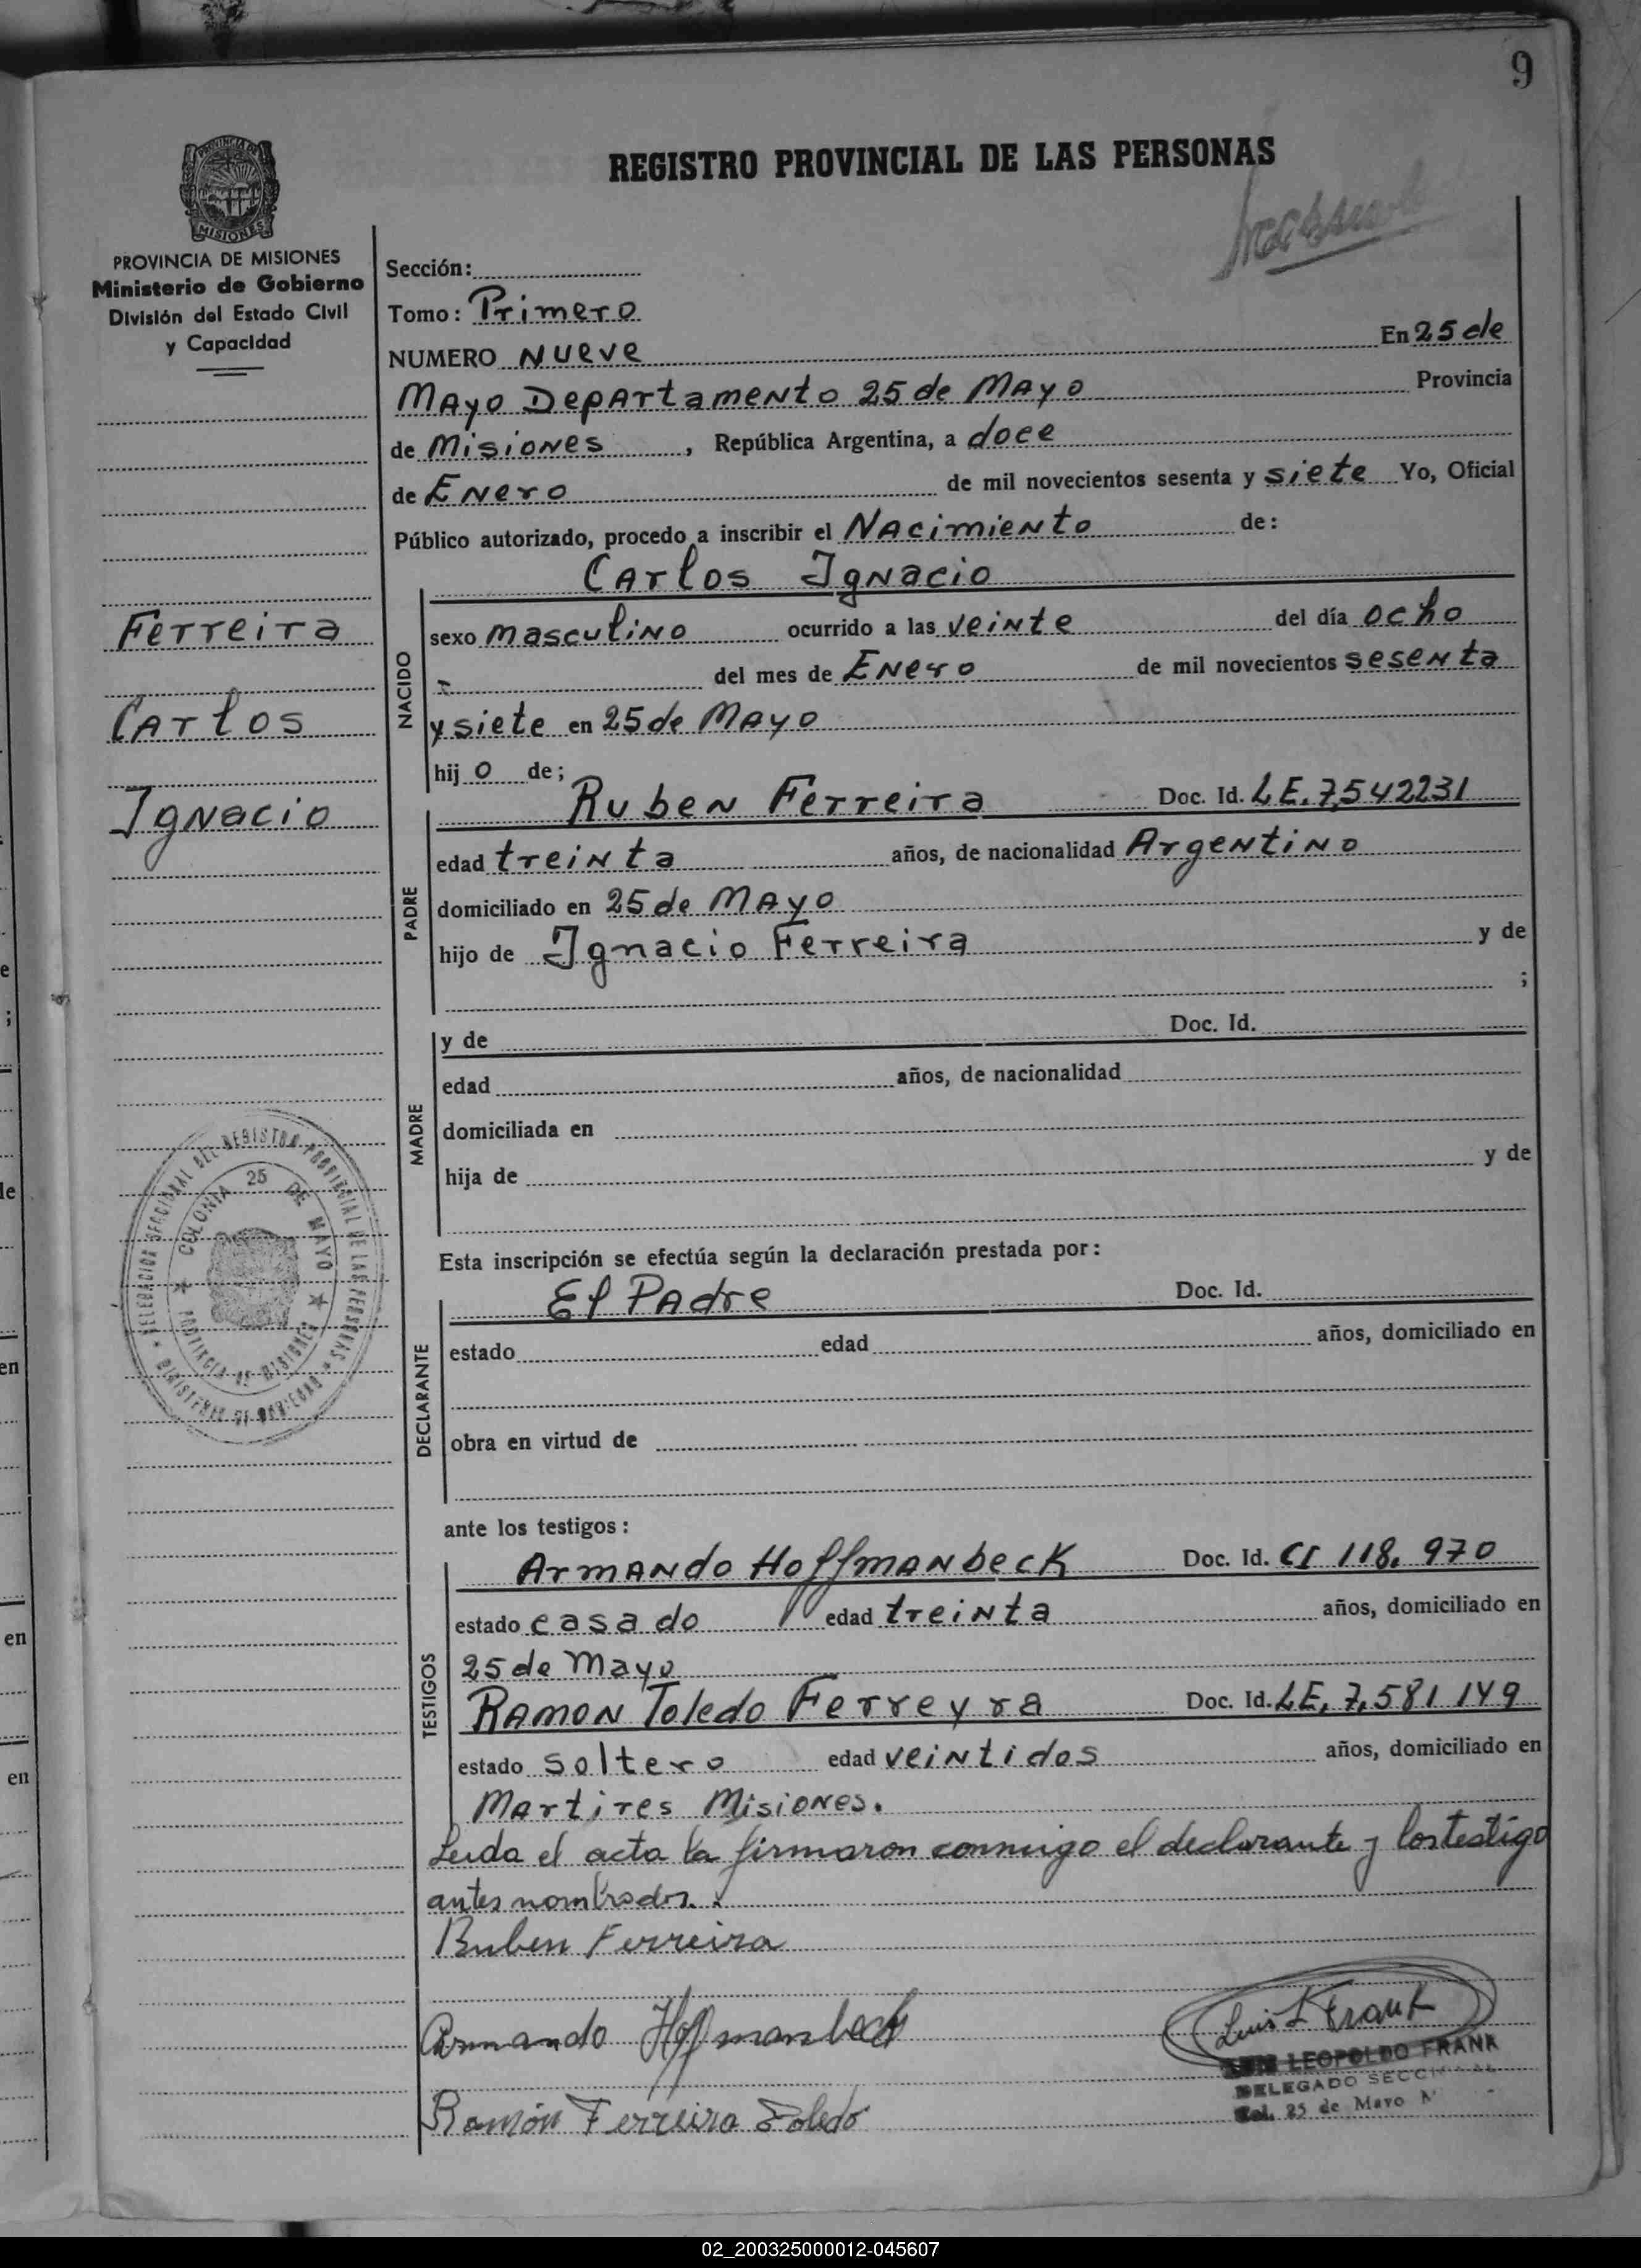 9
REGISTRO PROVINCIAL DE LAS PERSONAS
PROVINCIA DE
MISIONES
PROVINCIA DE MISIONES
Ministerio de Gobierno
División del Estado Civil
y Capacidad
Sección:
Tomo: Primero
NUMERO Nueve En 25 de
Mayo Departamento 25 de Mayo Provincia
de Misiones, República Argentina, a doce
de Enero de mil novecientos sesenta y siete Yo, Oficial
Público autorizado, procedo a inscribir el Nacimiento de:
Carlos Ignacio
Ferreira
Carlos
Ignacio
NACIDO
sexo masculino ocurrido a las veinte del día ocho
del mes de Enero de mil novecientos sesenta
y siete en 25 de Mayo
hijo de;
PADRE
Ruben Ferreira Doc. Id. LE. 7,542231
edad treinta años, de nacionalidad Argentino
domiciliado en 25 de Mayo
hijo de Ignacio Ferreira y de
;
MADRE
y de Doc. Id.
edad años, de nacionalidad
domiciliada en
hija de y de
DELEGACION SECCIONAL DEL REGISTRO PROVINCIAL DE LAS PERSONAS
MINISTERIO DE GOBIERNO
COLONIA 25 DE MAYO
PROVINCIA DE MISIONES
Esta inscripción se efectúa según la declaración prestada por:
DECLARANTE
El Padre Doc. Id.
estado edad años, domiciliado en
obra en virtud de
ante los testigos:
TESTIGOS
Armando Hoffmanbeck Doc. Id. CI 118. 970
estado casado edad treinta años, domiciliado en
25 de Mayo
Ramon Toledo Ferreyra Doc. Id. LE, 7,581 149
estado soltero edad veintidos años, domiciliado en
Martires Misiones.
Leida el acta la firmaron conmigo el declarante y los testigo
antes nombrados.
Ruben Ferreira
Armando Hoffmanbeck
Luis L Frank
LEOPOLDO FRANK
DELEGADO SECCIONAL
Col. 25 de Mayo
Ramón Ferreira Toledo
02_200325000012-045607